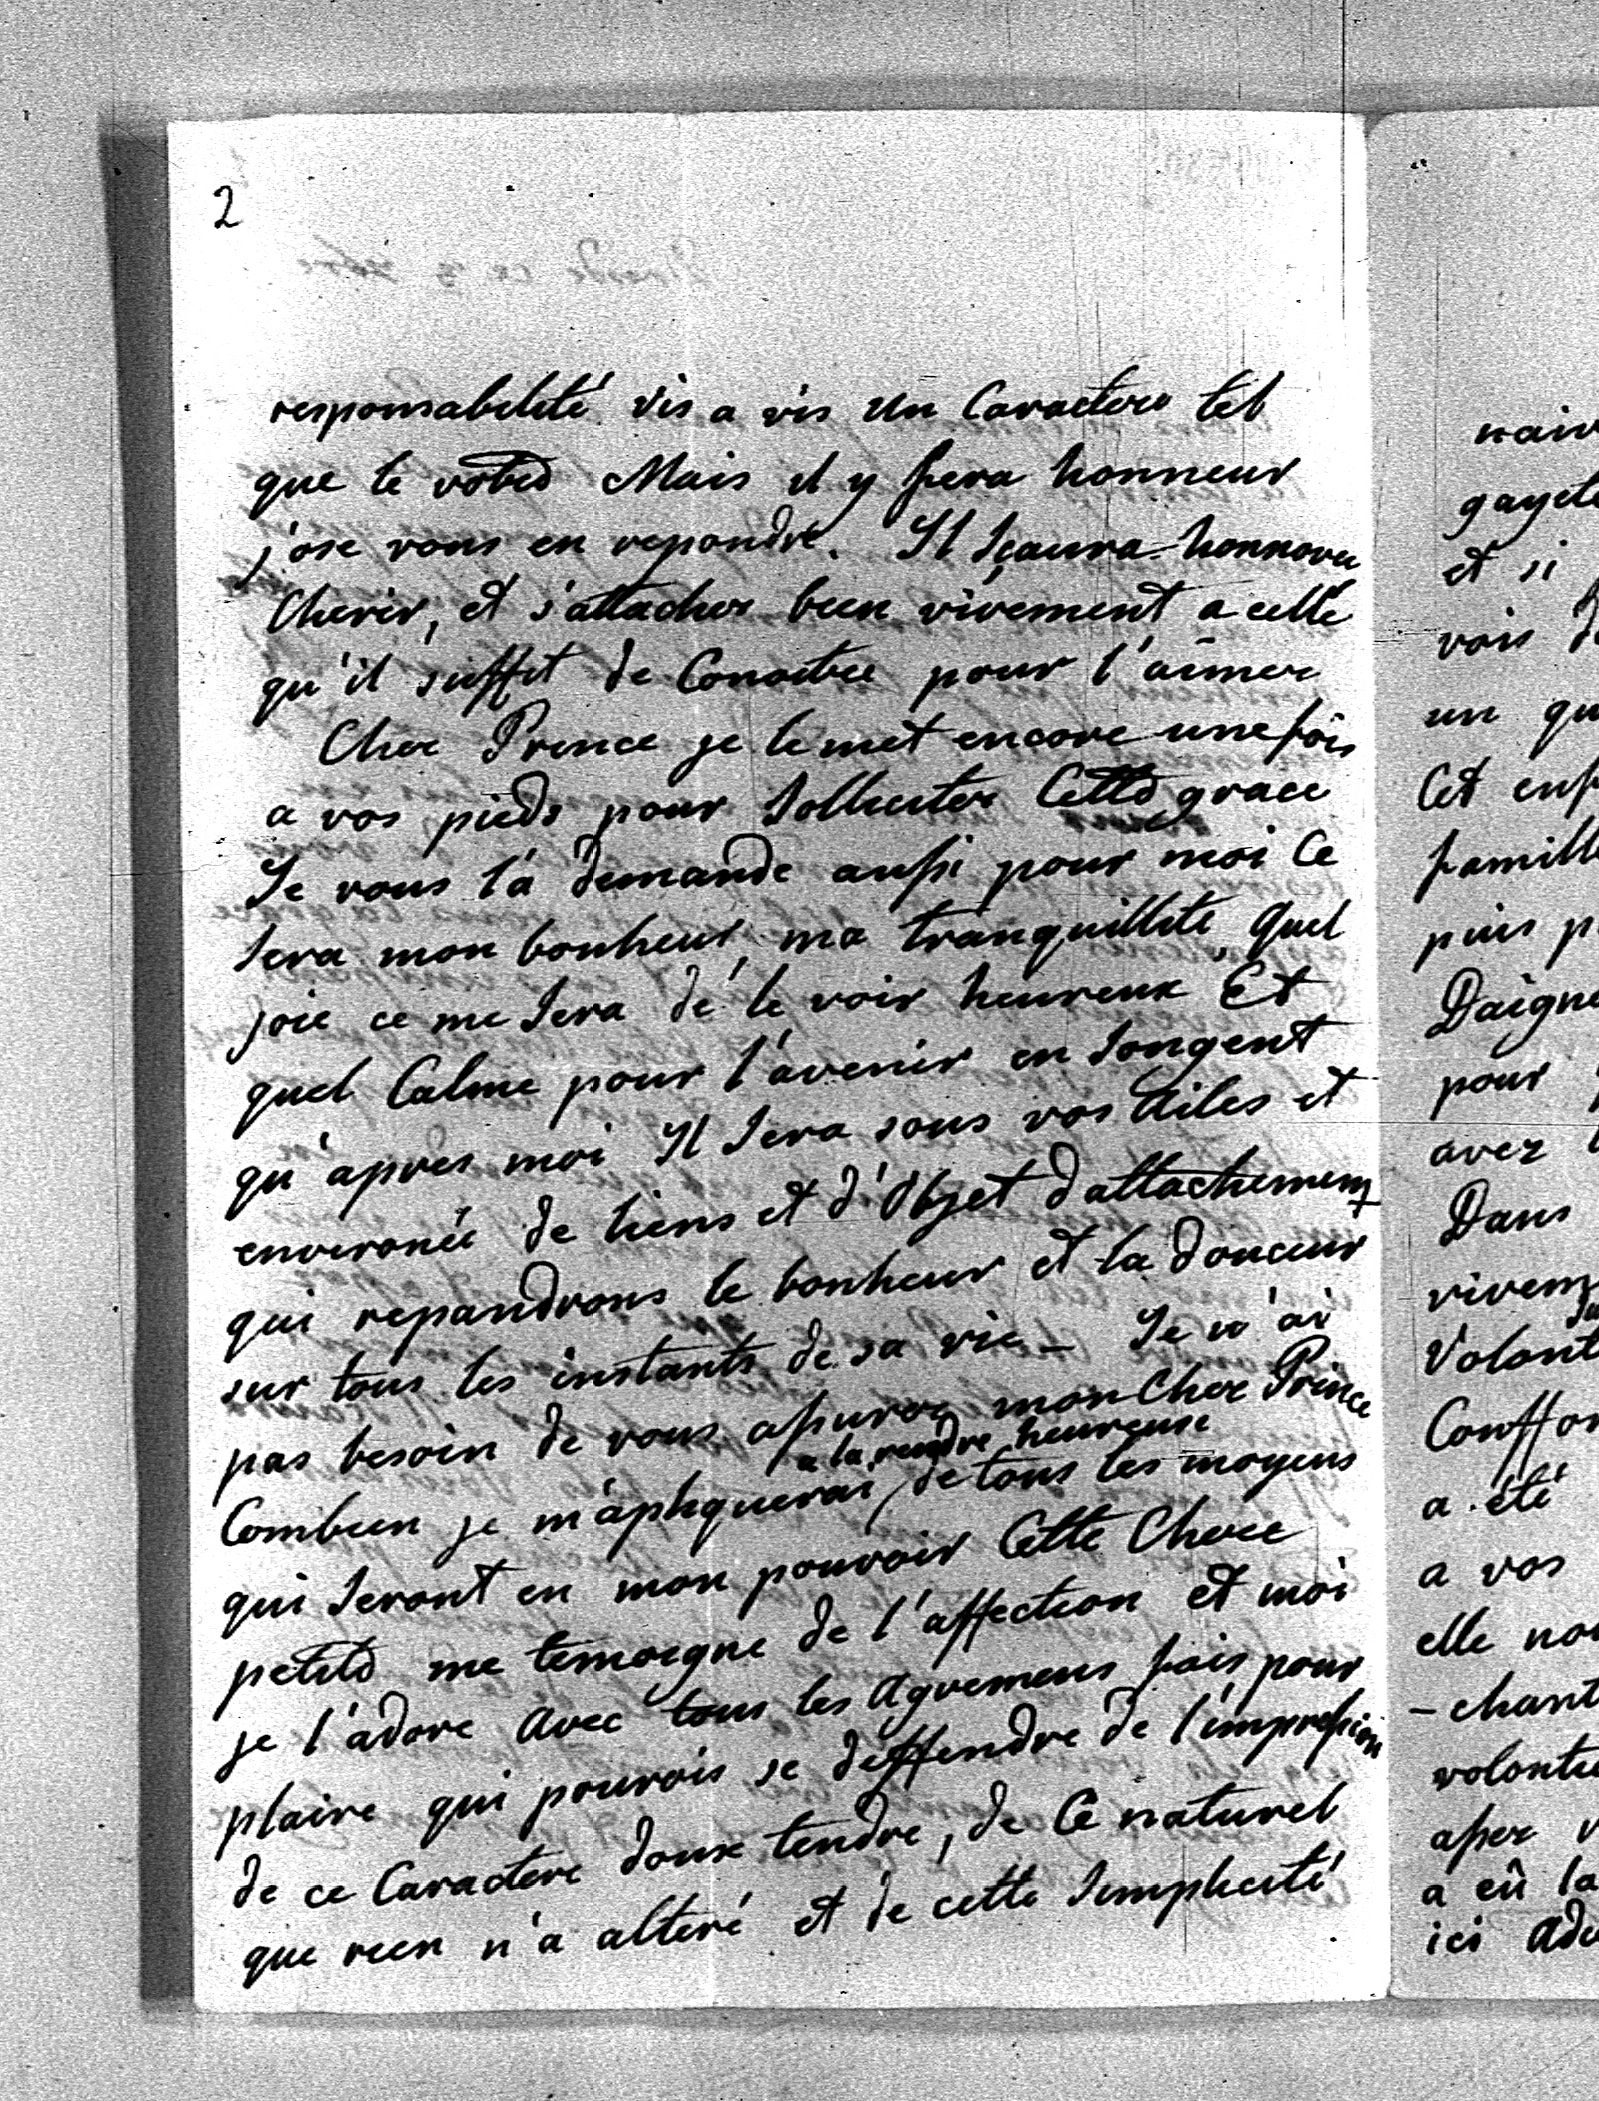 2
responsabilité vis a vis un Caractere tel
que le votre Mais il y fera honneur
j'ose vous en repondre. Il Sçaura honnorer
Cherir, et s'attacher bien vivement a celle
qu'il suffit de Conoitre pour l'aimer
Cher Prince je le met encore une fois
a vos pieds pour Solliciter Cette grace
Je vous la demande aussi pour moi Ce
Sera mon bonheur, ma tranquillité, quel
joie ce me Sera de le voir heureux Et
quel Calme pour l'avenir en Songent
qu'apres moi Il Sera sous vos Ailes et
environée de liens et d'Objet d'attachement
qui repandrons le bonheur et la douceur
sur tous les instants de sa vie _ Je n'ai
pas besoin de vous assurer mon Cher Prince
a la rendre heureuse
Combien je m'apliquerai de tous les moyens
qui Seront en mon pouvoir Cette Chere
petite me temoigne de l'affection et moi
je l'adore Avec tous les Agremens fais pour
plaire qui pourois se deffendre de l'impression
de ce Caractere doux tendre, de Ce naturel
que rien n'a alteré et de cette Simplicité
gayeté
et si
vois de
un qu
Cet enf
famille
puis p
Daigne
pour
avez
Dans
Volont
Conffor
a été
a vos
elle nou
-chant
volontie
assez v
a eû la
ici Ado